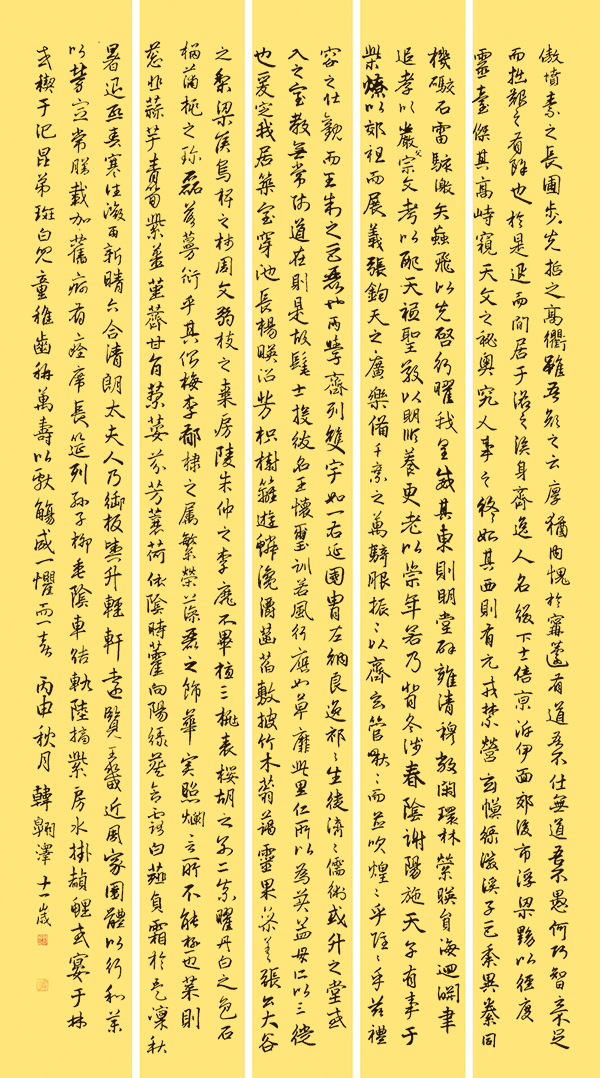 傲墳素之長圃步先哲之高衢雖吾顏之云厚猶內愧於寧蘧有道吾不仕無道吾不愚何巧智之不足
而拙艱之有餘也於是退而閑居于洛之涘身齊逸人名綴下士倍京泝伊面郊後市浮梁黝以徑度
靈臺傑其高峙窺天文之秘奧究人事之終始其西則有元戎禁營玄幙綠徽溪子巨黍異絭同
機礮石雷駭激矢蝱飛以先啓行曜我皇威其東則明堂辟雍清穆敞閑環林縈暎員海迴淵聿
追孝以嚴父宗文考以配天祗聖敬以明順養更老以崇年若乃背冬涉春陰謝陽施天子有事于
柴燎以郊祖而展義張鈞天之廣樂備千乘之萬騎服振〻以齊玄管啾〻而並吹煌〻乎隱〻乎茲禮
容之壯觀而王制之巨麗也兩學齊列雙宇如一右延國冑左納良逸祁〻生徒濟〻儒術或升之堂或
入之室教無常師道在則是故髦士投紱名王懷璽訓若風行應如草靡此里仁所以為美孟母所以三徙
也爰定我居築室穿池長楊暎沼芳枳樹籬遊鱗瀺灂菡萏敷披竹木蓊藹靈果參差張公大谷
之梨梁侯烏椑之柿周文弱枝之棗房陵朱仲之李靡不畢植三桃表櫻胡之別二柰曜丹白之色石
榴蒲桃之珍磊落蔓衍乎其側梅李郁棣之屬繁榮藻麗之飾華實照爛言所不能極也菜則
蔥韭蒜芋青筍紫薑堇薺甘旨蓼荾芬芳蘘荷依陰時藿向陽綠葵含露白薤負霜於是凜秋
暑退熙春寒往微雨新晴六合清朗太夫人乃御板輿升輕軒遠覽王畿近周家園體以行和藥
以勞宣常膳載加舊痾有痊席長筵列孫子柳垂陰車結軌陸摘紫房水掛赬鯉或宴于林
或禊于汜昆弟斑白兒童稚齒稱萬壽以獻觴咸一懼而一喜 丙申秋月 韓翱澤 十一歲